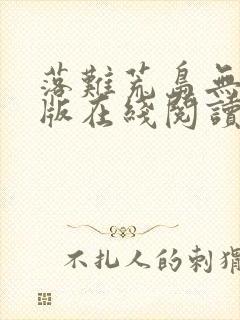 落難荒島無
版在綫閱讀
不扎人的刺猬